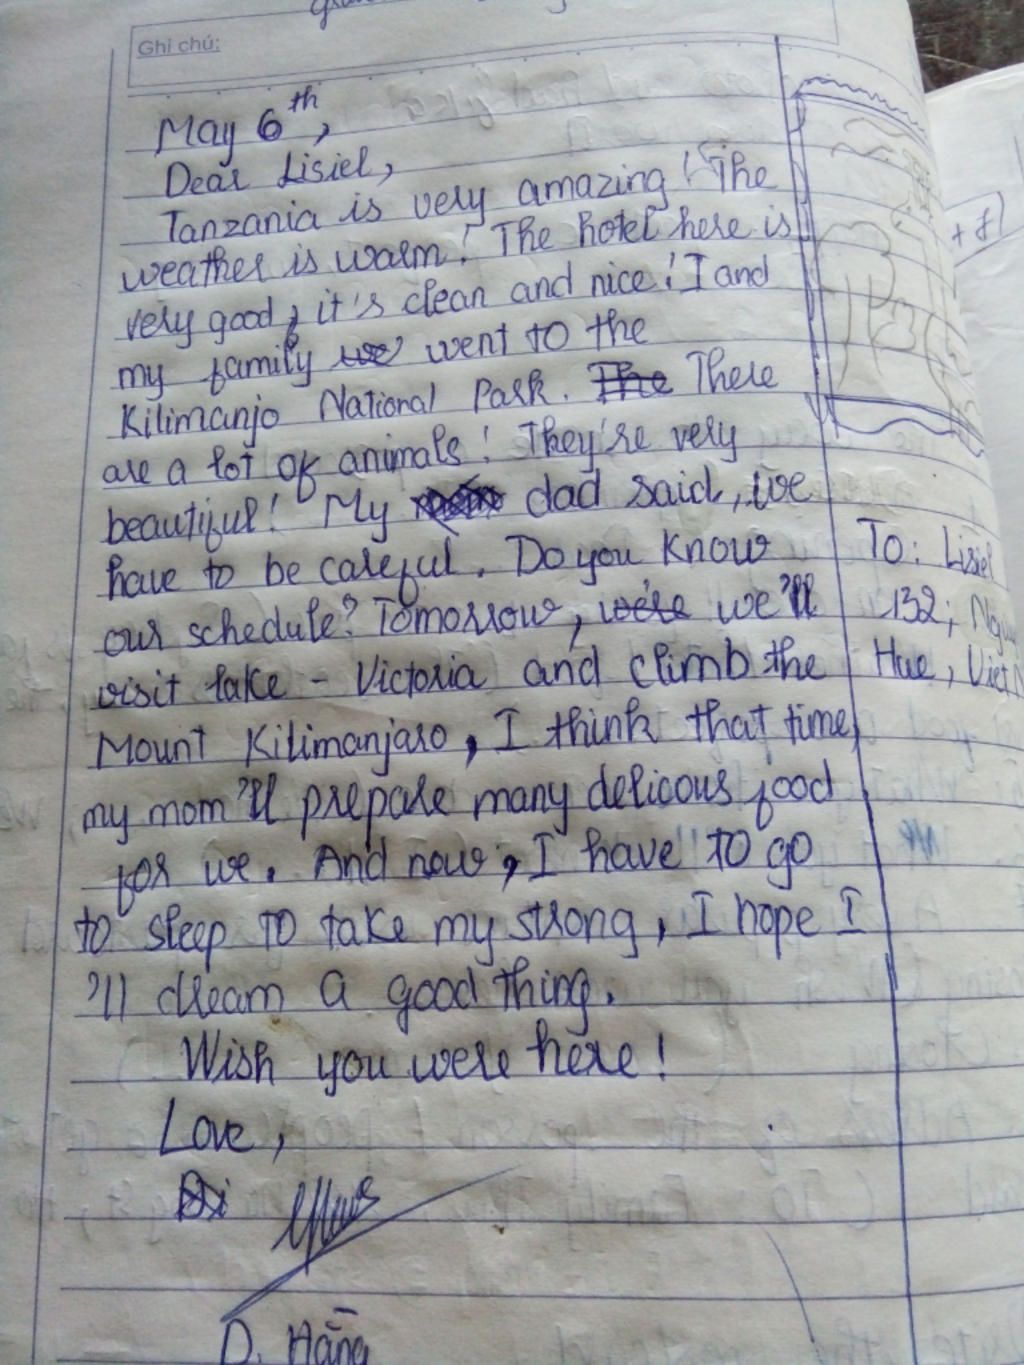 Ghi chú:
May 6th,
Dear Lisiel,
Tanzania is very amazing! The
weather is warm! The hotel here is
very good, it's clean and nice! I and
my family we went to the
Kilimanjo National Park. The There
are a lot of animals! They're very
beautiful! My mom dad said, we
have to be careful. Do you know
our schedule? Tomorrow, we're we'll
visit lake - Victoria and climb the
Mount Kilimanjaro, I think that time,
my mom'll prepare many delicous food
for we. And now, I have to go
to sleep to take my strong, I hope I
'll dream a good thing.
Wish you were here!
Love,
D. Hằng
To: Lisiel
132,
Hue, Viet